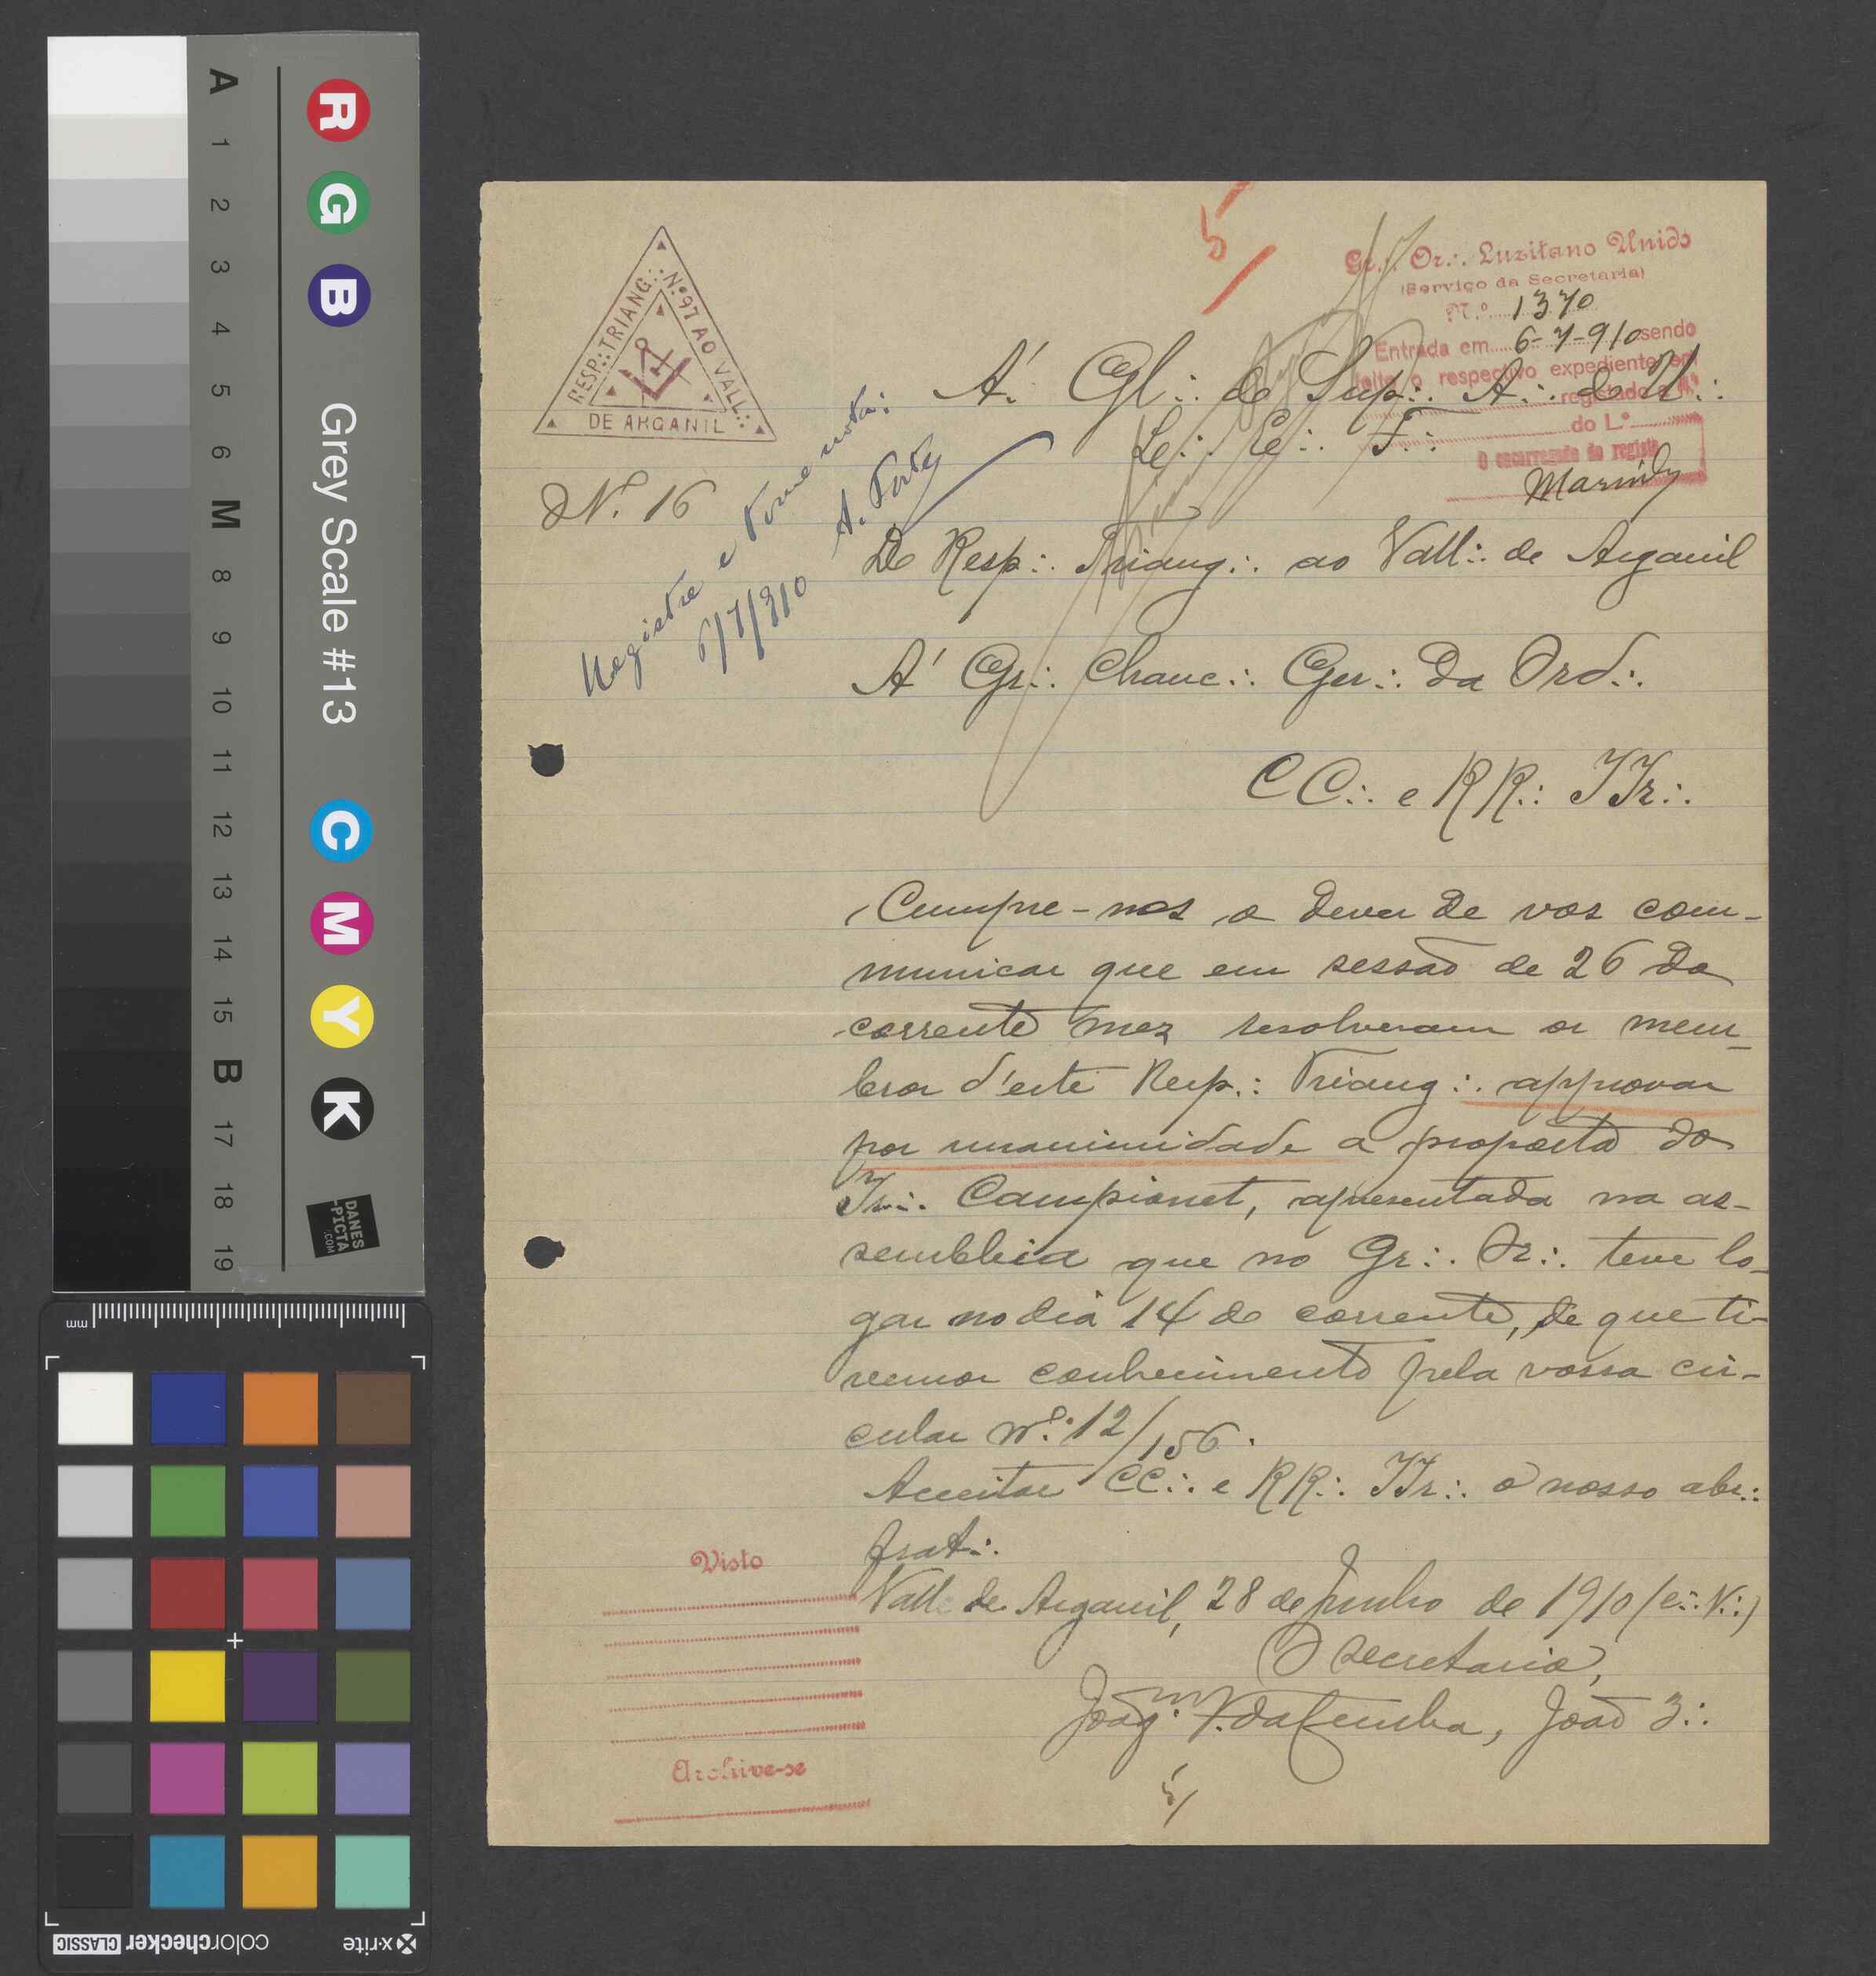 RESP∴ TRIANG∴ Nº 97 AO VALL∴
DE ARGANIL
5/
Gr∴ Or∴ Luzitano Unido
(Serviço da Secretaria)
N.º 1370
Entrada em 6-7-910 sendo
feito o respectivo expediente em
registado a fl.
do L.º
O encarregado do registo
A' Gl∴ do Sup∴ A∴ do U∴
L∴ E∴ F∴
N.º 16
Registre e tome nota:
6/7/910
De Resp∴ Triang∴ ao Vall∴ de Arganil
A' Gr∴ Chanc∴ Ger∴ da Ord∴
CC∴ e RR∴ IIr∴
Cumpre-nos o dever de vos com-
municar que em sessão de 26 do
corrente mez resolveram os mem-
bros d'este Resp∴ Triang∴ approvar
por unanimidade a proposta do
Ir∴ Campionet, apresentada na as-
sembleia que no Gr∴ Or∴ teve lo-
gar no dia 14 do corrente, de que ti-
vemos conhecimento pela vossa cir-
cular n.º 12/156.
Acceitae CC∴ e RR∴ IIr∴ o nosso abr∴
frat∴
Vall de Arganil, 28 de Junho de 1910 (e∴ v∴)
O secretario,
Joaq.m V. da Cunha, João 3∴
5/
Visto
Archive-se
A 1 2 3 4 5 6 M 8 9 10 11 12 13 14 15 B 17 18 19
R G B Grey Scale #13 C M Y K
DANES
-PICTA
.COM
mm
x-rite colorchecker CLASSIC